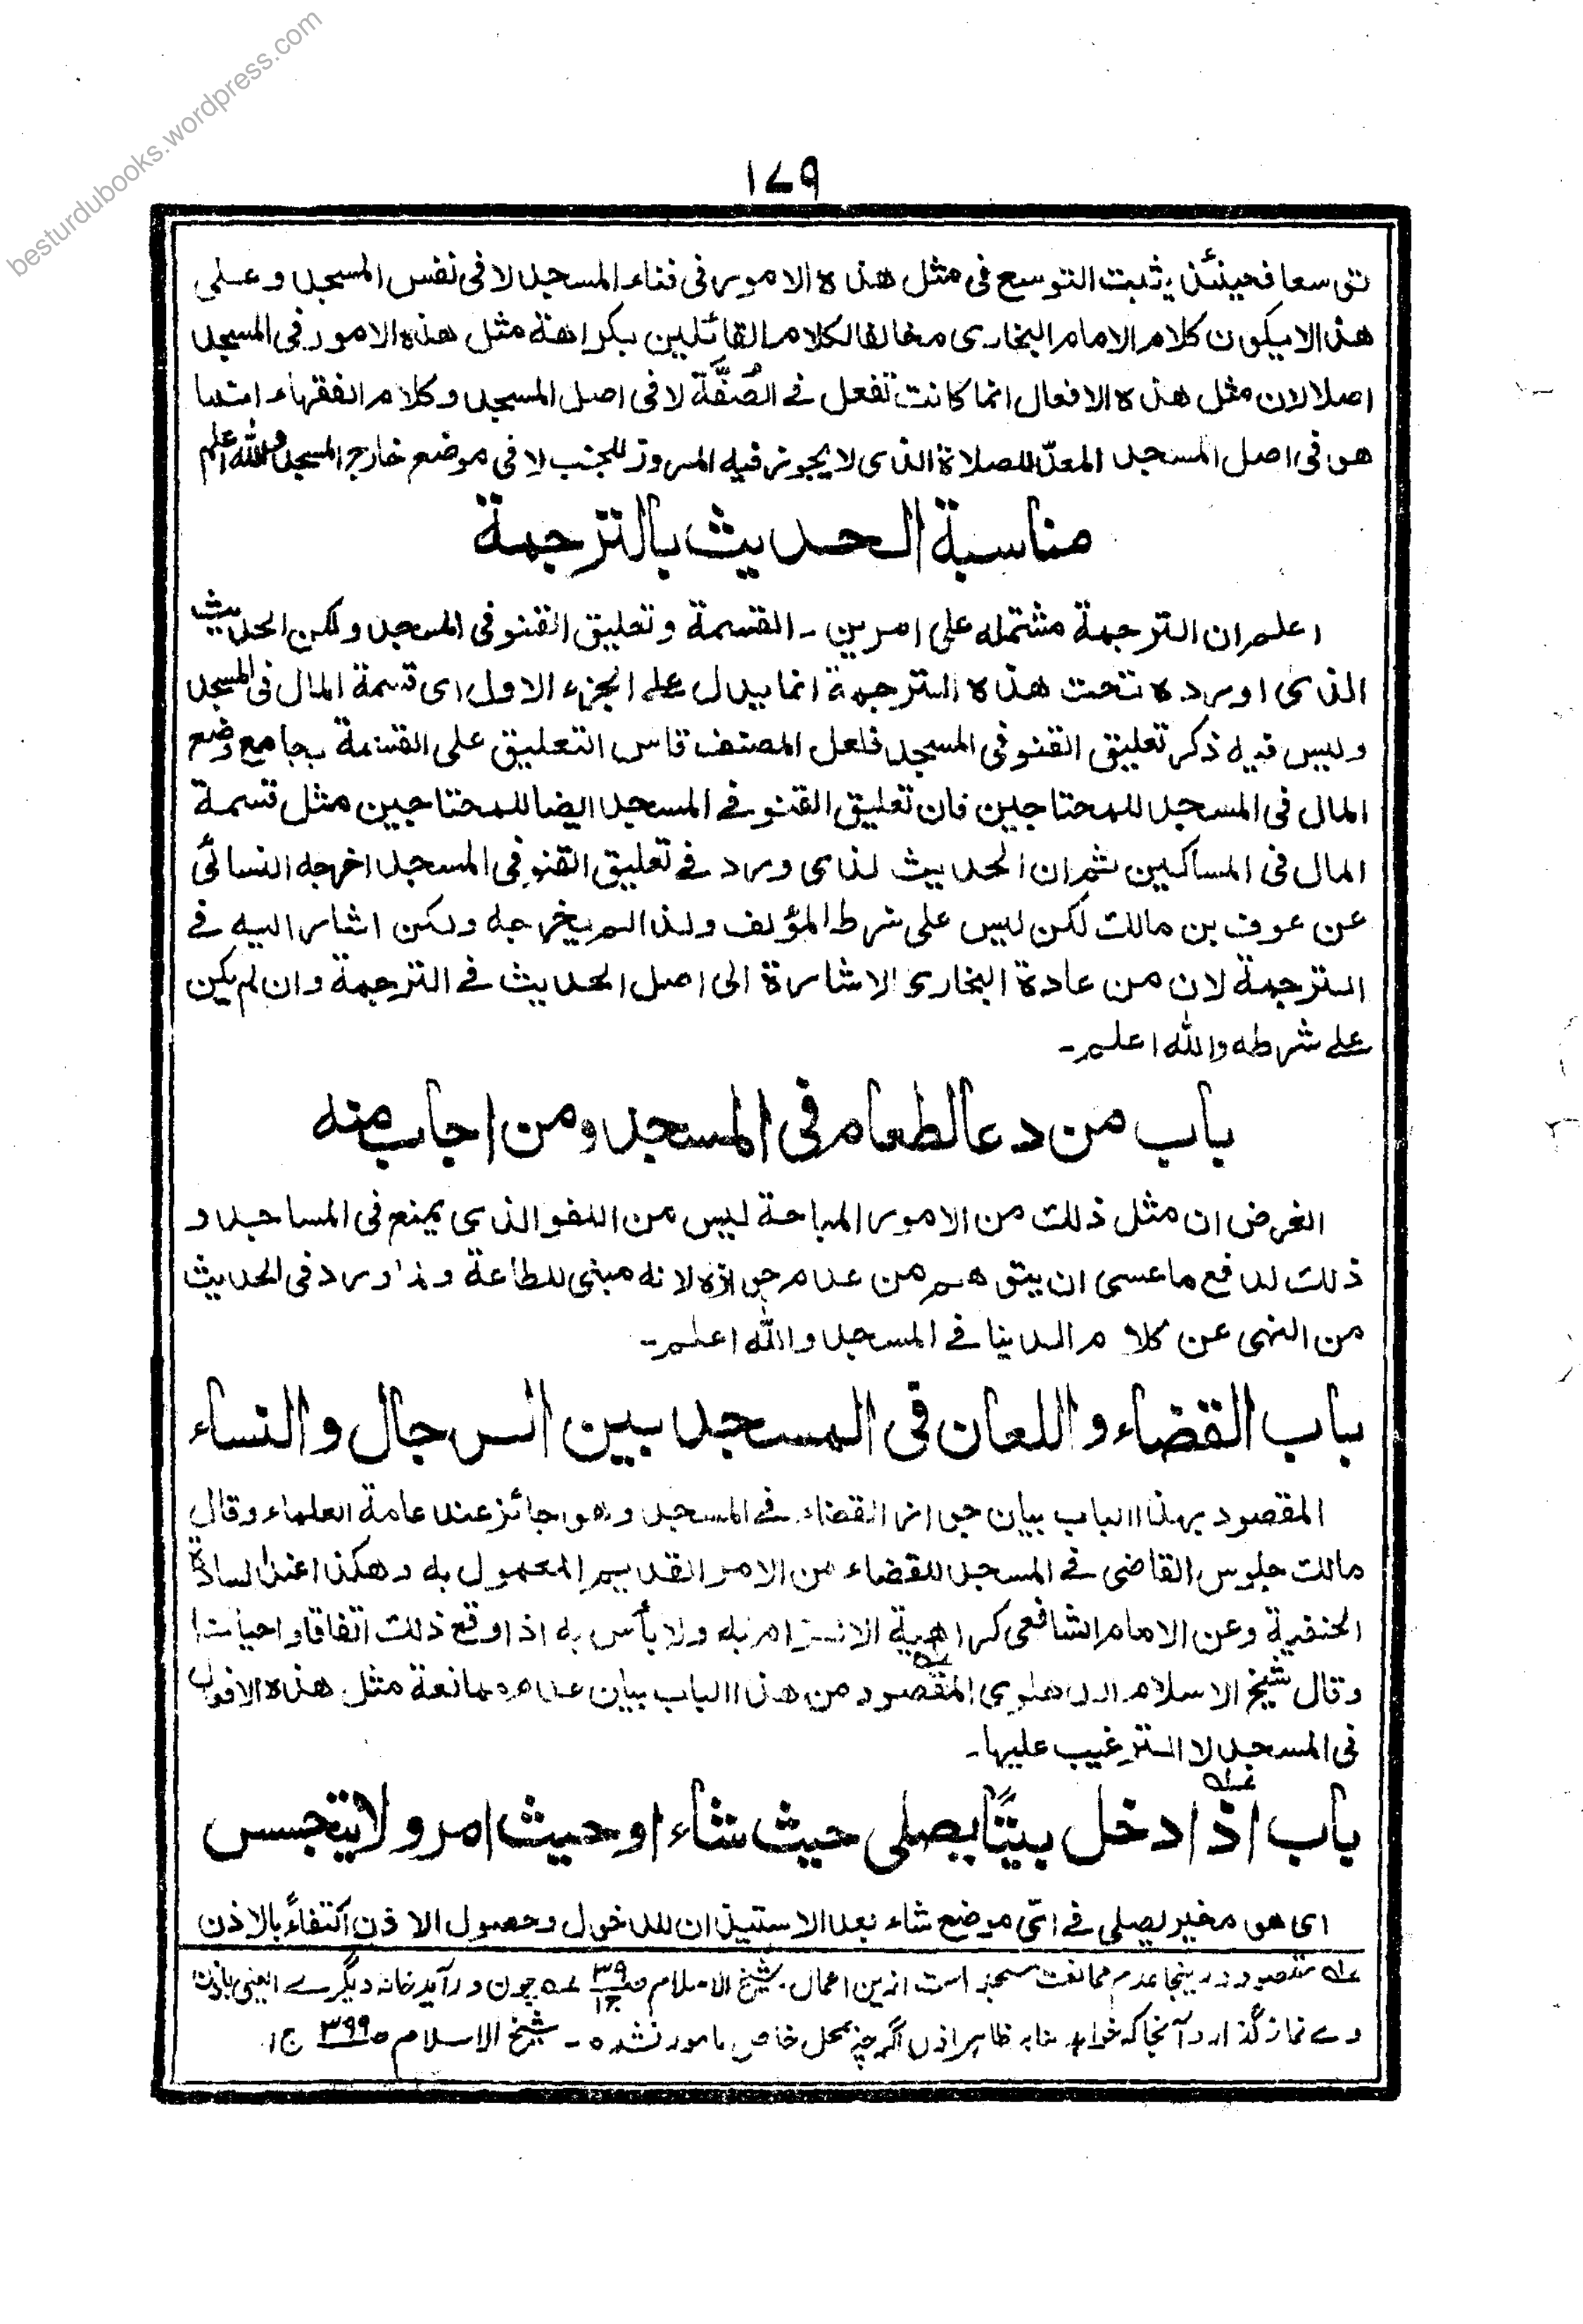 besturdubooks.wordpress.com
۱۷۹
توسعا فحينئذ يثبت التوسع فى مثل هذه الامور فى فناء المسجد لا فى نفس المسجد وعلى
هذا لا يكون كلام الامام البخارى مخالفا لكلام القائلين بكراهة مثل هذه الامور فى المسجد
اصلا لان مثل هذه الافعال انما كانت تفعل فى الصُفَّة لا فى اصل المسجد وكلام الفقهاء انما
هو فى اصل المسجد المعدّ للصلاة الذى لا يجوز فيه المرور للجنب لا فى موضع خارج المسجد والله اعلم
مناسبة الحديث بالترجمة
اعلم ان الترجمة مشتملة على امرين ـ القسمة وتعليق القنو فى المسجد ولكن الحديث
الذى اورده تحت هذه الترجمة انما يدل على الجزء الاول اى قسمة المال فى المسجد
وليس فيه ذكر تعليق القنو فى المسجد فلعل المصنف قاس التعليق على القسمة بجامع وضع
المال فى المسجد للمحتاجين فان تعليق القنو فى المسجد ايضا للمحتاجين مثل قسمة
المال فى المساكين ثم ان الحديث لذى ورد فى تعليق القنو فى المسجد اخرجه النسائى
عن عوف بن مالك لكن ليس على شرط المؤلف ولذا لم يخرجه ولكن اشار اليه فى
الترجمة لان من عادة البخارى الاشارة الى اصل الحديث فى الترجمة وان لم يكن
على شرطه والله اعلم ـ
باب من دعا لطعام فى المسجد ومن اجاب منه
الغرض ان مثل ذلك من الامور المباحة ليس من اللغو الذى يمنع فى المساجد و
ذلك لدفع ما عسى ان يتوهم من عدم جوازه لانه مبنى للطاعة ولما ورد فى الحديث
من النهى عن كلام الدنيا فى المسجد والله اعلم ـ
باب القضاء واللعان فى المسجد بين الرجال والنساء
المقصود بهذا الباب بيان جواز القضاء فى المسجد وهو جائز عند عامة العلماء وقال
مالك جلوس القاضى فى المسجد للقضاء من الامر القديم المعمول به وهكذا عند السادة
الحنفية وعن الامام الشافعى كراهية الالتزام به ولا بأس به اذا وقع ذلك اتفاقا واحيانا
وقال شيخ الاسلام الدهلوى المقصود من هذا الباب بيان عدم ممانعة مثل هذه الافعال
فى المسجد لا الترغيب عليها ـ
باب اذا دخل بيتًا يصلى حيث شاء او حيث امر ولا يتجسس
اى هو مخير يصلى فى اىّ موضع شاء بعد الاستيذان للدخول وحصول الاذن اكتفاءً بالاذن
عـ۱ مقصود درینجا عدم ممانعت مسجد است ازین اعمال ـ شیخ الاسلام ص ۳۹ ج۱ عـ۵ چون درآید خانه دیگرے (یعنی باذن
وے نماز گذارد آنجا که خواهد بنابر ظاهر اذن اگرچه بمحل خاص مامور نشده ـ شیخ الاسلام ص ۳۹۹ ج۱